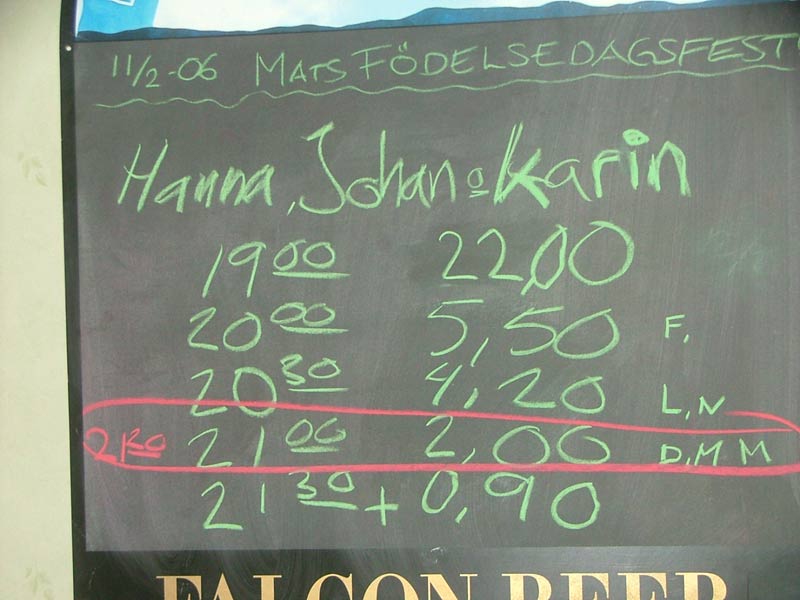 11/2-06 MATS FÖDELSEDAGSFEST
Hanna, Johan o Karin
19 00 22,00
20 00 5,50 F,
20 30 4,20 L,N
21 00 2,00 D,M M
21 30 + 0,90
FALCON BEER